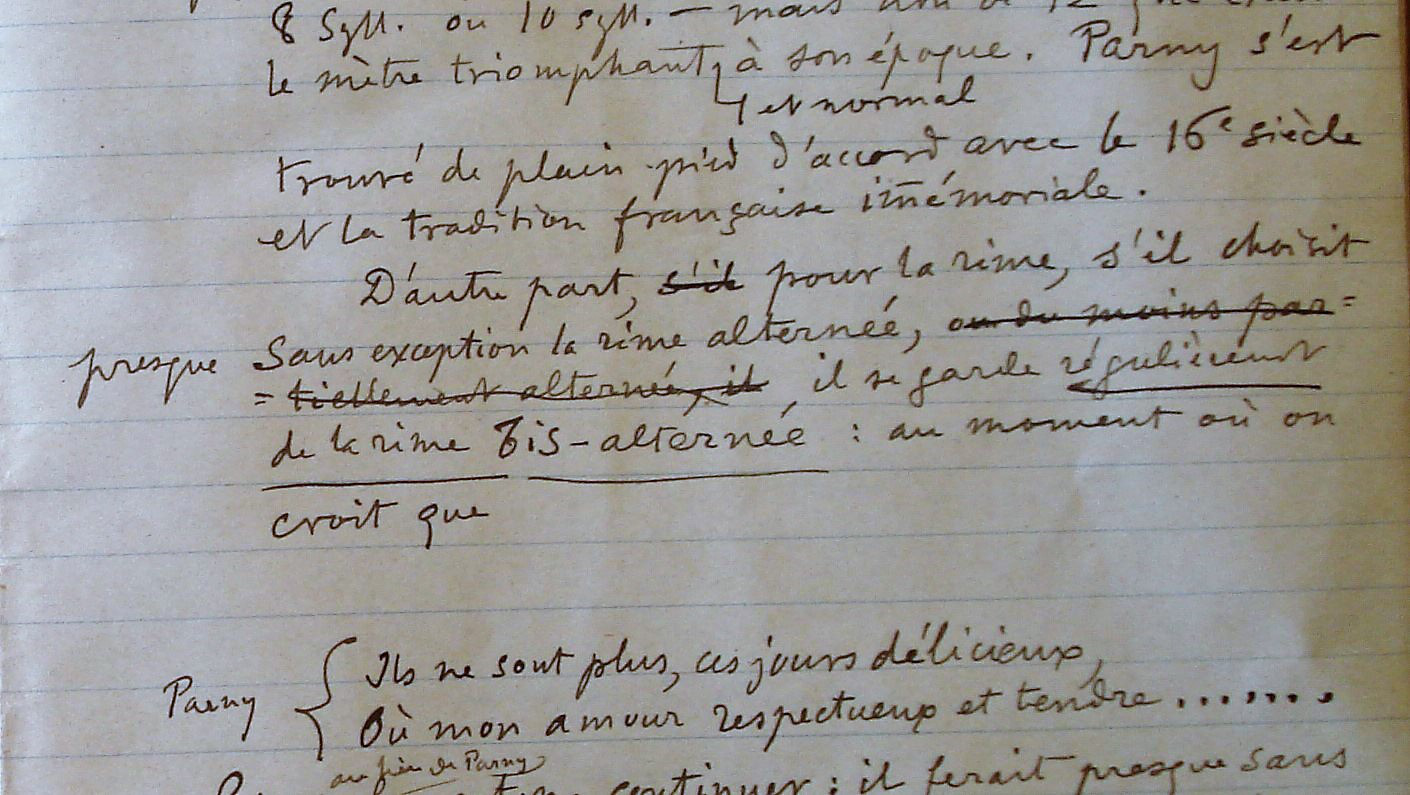 8 Syll. ou 10 syll. — mais non de 12
le mètre triomphant à son époque. Parny s'est
et normal
trouvé de plain pied d'accord avec le 16e siècle
et la tradition française im̄émoriale.
D'autre part, s'il pour la rime, s'il choisit
presque Sans exception la rime alternée, ou du moins par=
= tiellement alternée, il , il se garde régulièrement
de la rime bis-alternée : au moment où on
croit que
Parny { Ils ne sont plus, ces jours délicieux,
Où mon amour respectueux et tendre .......
au frère de Parny
continuer : il ferait presque sans